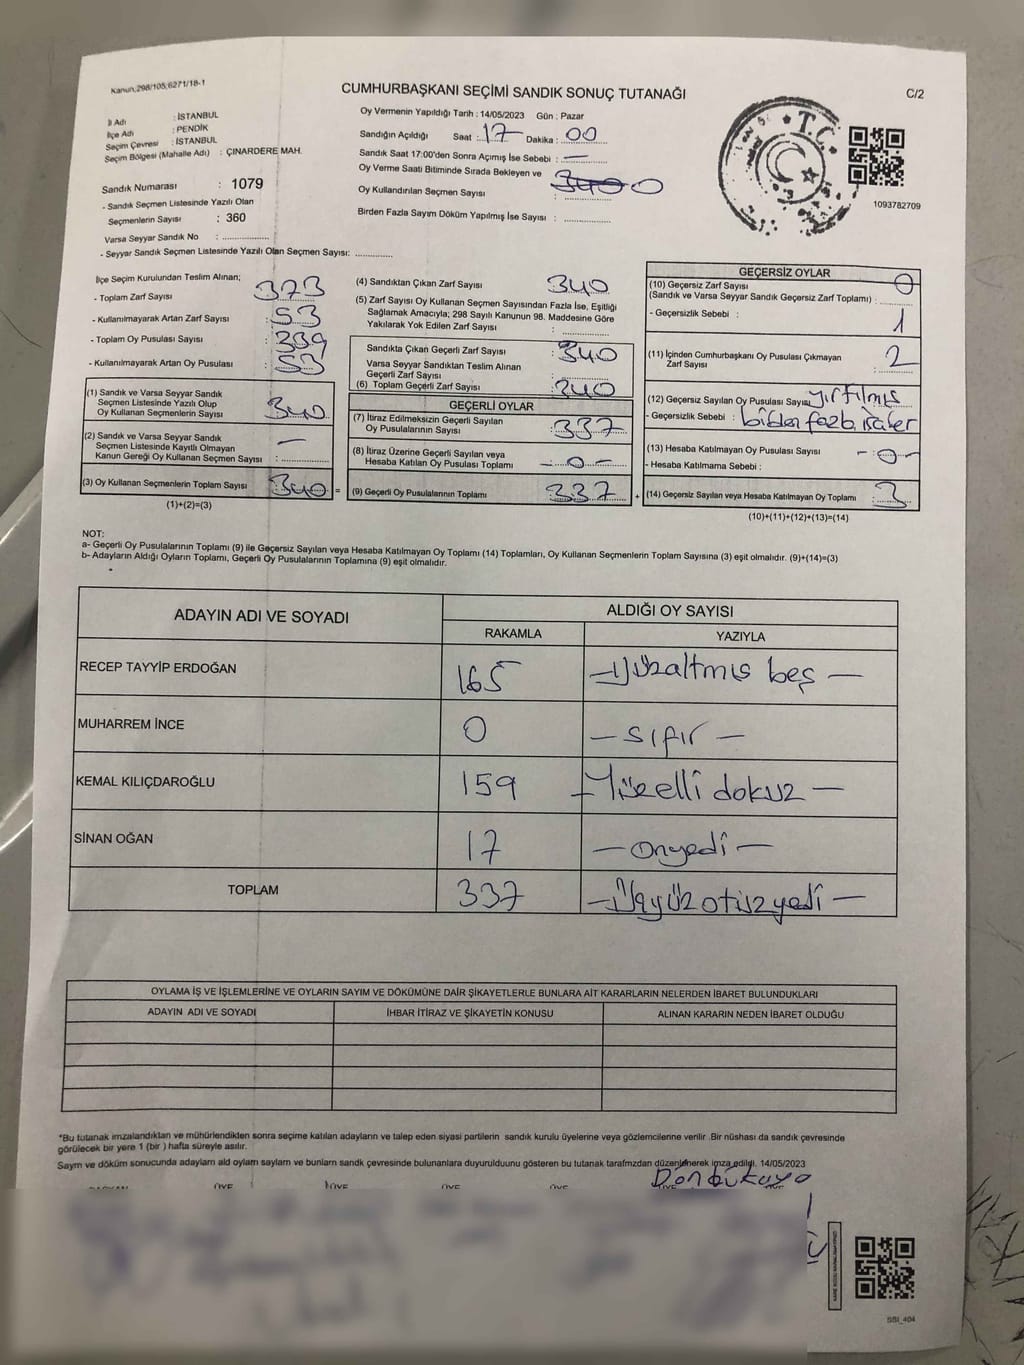 Kanun:298/105;6271/18-1
CUMHURBAŞKANI SEÇİMİ SANDIK SONUÇ TUTANAĞI
C/2
İl Adı : İSTANBUL
İlçe Adı : PENDİK
Seçim Çevresi : İSTANBUL
Seçim Bölgesi (Mahalle Adı) : ÇINARDERE MAH.
Sandık Numarası : 1079
- Sandık Seçmen Listesinde Yazılı Olan
Seçmenlerin Sayısı : 360
Varsa Seyyar Sandık No :
- Seyyar Sandık Seçmen Listesinde Yazılı Olan Seçmen Sayısı:
Oy Vermenin Yapıldığı Tarih : 14/05/2023 Gün : Pazar
Sandığın Açıldığı Saat : 17 Dakika : 00
Sandık Saat 17:00'den Sonra Açımış İse Sebebi : —
Oy Verme Saati Bitiminde Sırada Bekleyen ve
Oy Kullandırılan Seçmen Sayısı : 0
Birden Fazla Sayım Döküm Yapılmış İse Sayısı :
T.C.
1093782709
İlçe Seçim Kurulundan Teslim Alınan;
- Toplam Zarf Sayısı : 373
- Kullanılmayarak Artan Zarf Sayısı : 53
- Toplam Oy Pusulası Sayısı : 389
- Kullanılmayarak Artan Oy Pusulası : 53
(1) Sandık ve Varsa Seyyar Sandık
Seçmen Listesinde Yazılı Olup
Oy Kullanan Seçmenlerin Sayısı : 340
(2) Sandık ve Varsa Seyyar Sandık
Seçmen Listesinde Kayıtlı Olmayan
Kanun Gereği Oy Kullanan Seçmen Sayısı : —
(3) Oy Kullanan Seçmenlerin Toplam Sayısı : 340
(1)+(2)=(3)
=
(4) Sandıktan Çıkan Zarf Sayısı 340
(5) Zarf Sayısı Oy Kullanan Seçmen Sayısından Fazla İse, Eşitliği
Sağlamak Amacıyla; 298 Sayılı Kanunun 98. Maddesine Göre
Yakılarak Yok Edilen Zarf Sayısı :
Sandıkta Çıkan Geçerli Zarf Sayısı : 340
Varsa Seyyar Sandıktan Teslim Alınan
Geçerli Zarf Sayısı :
(6) Toplam Geçerli Zarf Sayısı : 340
GEÇERLİ OYLAR
(7) İtiraz Edilmeksizin Geçerli Sayılan
Oy Pusulalarının Sayısı : 337
(8) İtiraz Üzerine Geçerli Sayılan veya
Hesaba Katılan Oy Pusulası Toplamı : — 0 —
(9) Geçerli Oy Pusulalarının Toplamı : 337
+
GEÇERSİZ OYLAR
(10) Geçersiz Zarf Sayısı 0
(Sandık ve Varsa Seyyar Sandık Geçersiz Zarf Toplamı) :
- Geçersizlik Sebebi : 1
(11) İçinden Cumhurbaşkanı Oy Pusulası Çıkmayan
Zarf Sayısı : 2
(12) Geçersiz Sayılan Oy Pusulası Sayısı yırtılmış
- Geçersizlik Sebebi :
(13) Hesaba Katılmayan Oy Pusulası Sayısı : - 0 -
- Hesaba Katılmama Sebebi :
(14) Geçersiz Sayılan veya Hesaba Katılmayan Oy Toplamı : 3
(10)+(11)+(12)+(13)=(14)
NOT:
a- Geçerli Oy Pusulalarının Toplamı (9) ile Geçersiz Sayılan veya Hesaba Katılmayan Oy Toplamı (14) Toplamları, Oy Kullanan Seçmenlerin Toplam Sayısına (3) eşit olmalıdır. (9)+(14)=(3)
b- Adayların Aldığı Oyların Toplamı, Geçerli Oy Pusulalarının Toplamına (9) eşit olmalıdır.
ADAYIN ADI VE SOYADI ALDIĞI OY SAYISI
RAKAMLA YAZIYLA
RECEP TAYYİP ERDOĞAN 165 —Yüzaltmış beş —
MUHARREM İNCE 0 — sıfır —
KEMAL KILIÇDAROĞLU 159 — Yüzelli dokuz —
SİNAN OĞAN 17 — onyedi —
TOPLAM 337 —Üçyüzotuzyedi —
OYLAMA İŞ VE İŞLEMLERİNE VE OYLARIN SAYIM VE DÖKÜMÜNE DAİR ŞİKAYETLERLE BUNLARA AİT KARARLARIN NELERDEN İBARET BULUNDUKLARI
ADAYIN ADI VE SOYADI İHBAR İTİRAZ VE ŞİKAYETİN KONUSU ALINAN KARARIN NEDEN İBARET OLDUĞU
*Bu tutanak imzalandıktan ve mühürlendikten sonra seçime katılan adayların ve talep eden siyasi partilerin sandık kurulu üyelerine veya gözlemcilerine verilir .Bir nüshası da sandık çevresinde
görülecek bir yere 1 (bir ) hafta süreyle asılır.
Sayım ve döküm sonucunda adayların ald oyların sayların ve bunların sandk çevresinde bulunanlara duyurulduunu gösteren bu tutanak tarafmzdan düzenlenerek imza edildi. 14/05/2023
ÜYE ÜYE ÜYE ÜYE ÜYE
SSI_404